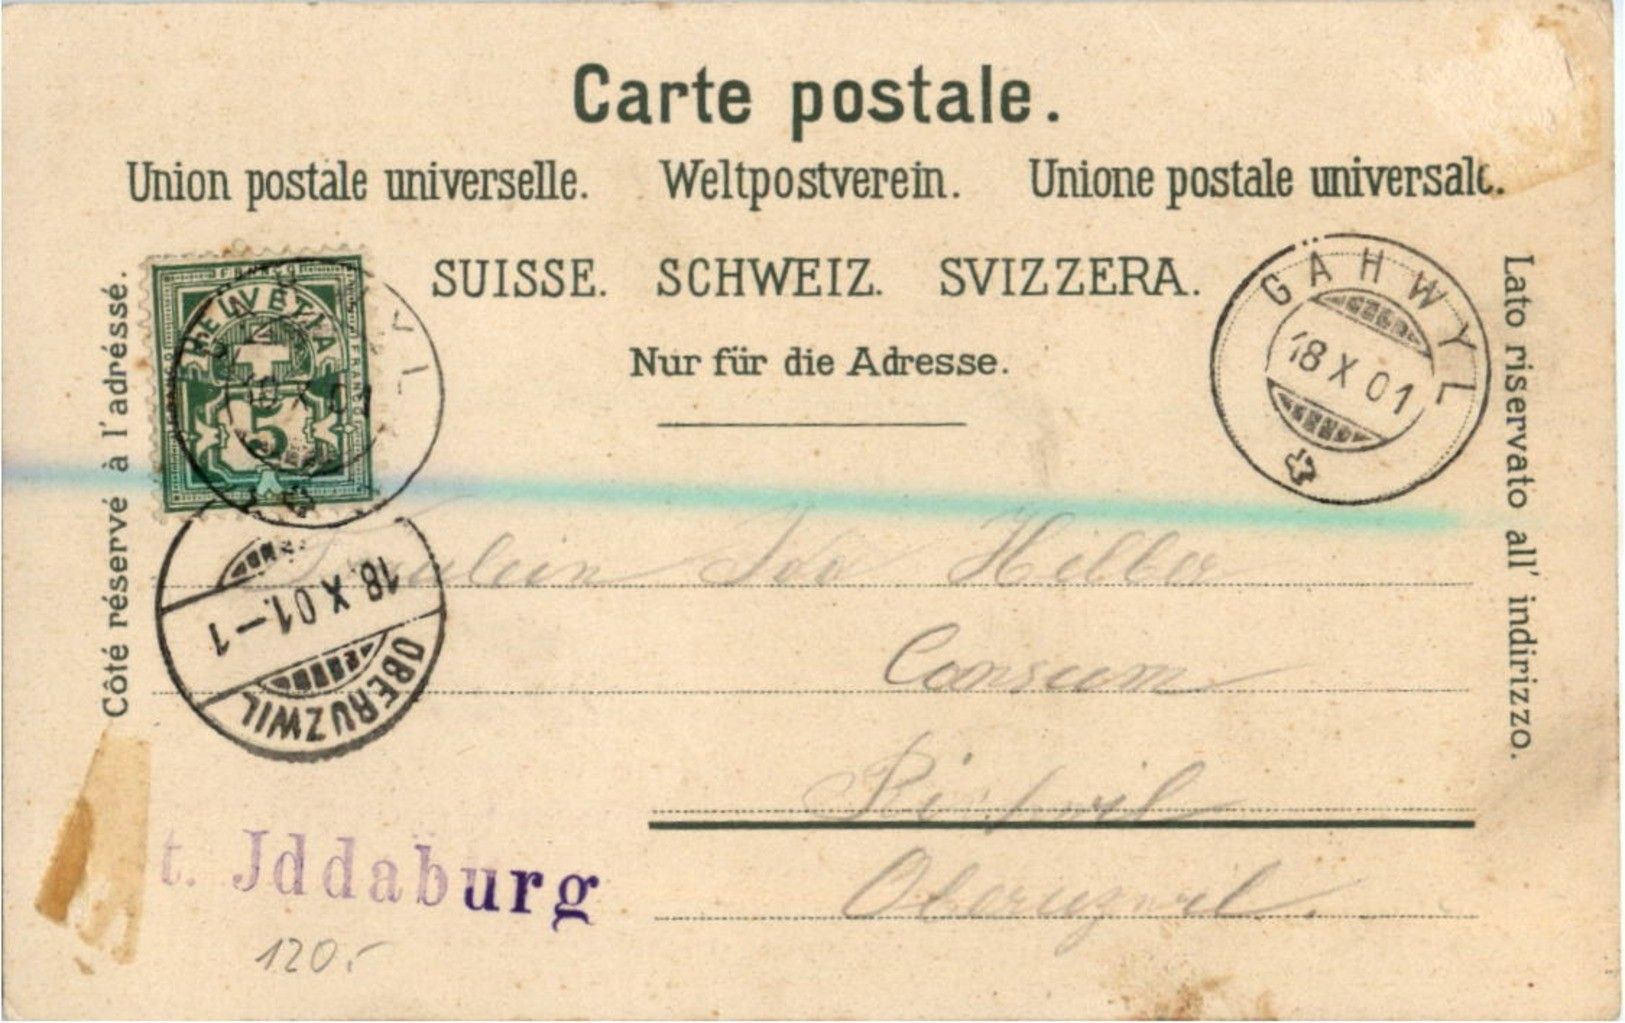 Carte postale.
Union postale universelle. Weltpostverein. Unione postale universale.
SUISSE. SCHWEIZ. SVIZZERA.
Nur für die Adresse.
Côté réservé à l'adréssé.
Lato riservato all' indirizzo.
FRANCO
HELVETIA
FRANCO
5
YL
GÄHWYL
18 X 01
18 X 01.-1
OBERUZWIL
Fräulein Ida Hilber
Consum
Oberuzwil.
t. Jddaburg
120.-